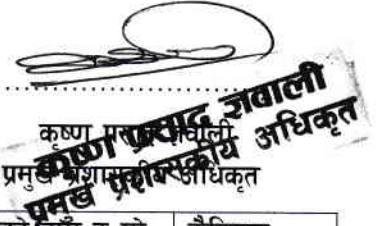 कृष्ण प्रसाद ज्ञवाली
प्रमुख प्रशासकीय अधिकृत
कृष्ण प्रसाद ज्ञवाली
प्रमुख प्रशासकीय अधिकृत